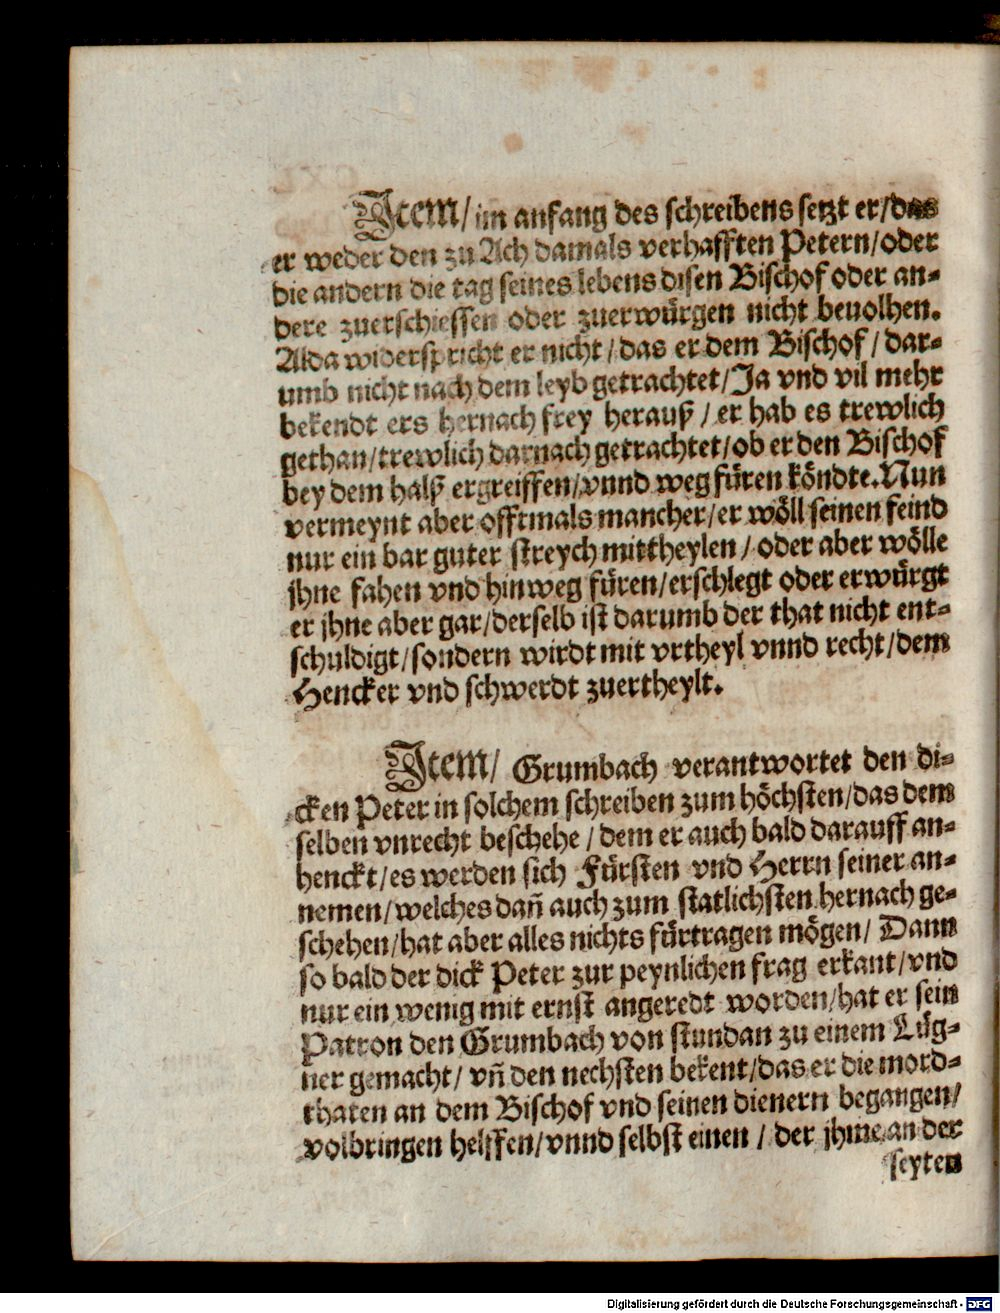 Item/ im anfang des schreibens setzt er/das
er weder den zu Ach damals verhafften Petern/oder
die andern die tag seines lebens disen Bischof oder an-
dere zuerschiessen oder zuerwürgen nicht beuolhen.
Alda widerspricht er nicht/das er dem Bischof/dar-
umb nicht nach dem leyb getrachtet/Ja vnd vil mehr
bekendt ers hernach frey herauß/er hab es trewlich
gethan/trewlich darnach getrachtet/ob er den Bischof
bey dem halß ergreiffen/vnnd weg füren köndte.Nun
vermeynt aber offtmals mancher/er wöll seinen feind
nur ein bar guter streych mittheylen/oder aber wölle
jhne fahen vnd hinweg füren/erschlegt oder erwürgt
er jhne aber gar/derselb ist darumb der that nicht ent-
schuldigt/sondern wirdt mit vrtheyl vnnd recht/dem
Hencker vnd schwerdt zuertheylt.
Item/ Grumbach verantwortet den di-
cken Peter in solchem schreiben zum höchsten/das dem
selben vnrecht beschehe/dem er auch bald darauff an-
henckt/es werden sich Fürsten vnd Herrn seiner an-
nemen/welches dañ auch zum statlichsten hernach ge-
schehen/hat aber alles nichts fürtragen mögen/ Dann
so bald der dick Peter zur peynlichen frag erkant/vnd
nur ein wenig mit ernst angeredt worden/hat er sein
Patron den Grumbach von stundan zu einem Lüg-
ner gemacht/ vñ den nechsten bekent/das er die mord-
thaten an dem Bischof vnd seinen dienern begangen/
volbringen helffen/vnnd selbst einen/ der jhme an der
seyten
Digitalisierung gefördert durch die Deutsche Forschungsgemeinschaft - DFG